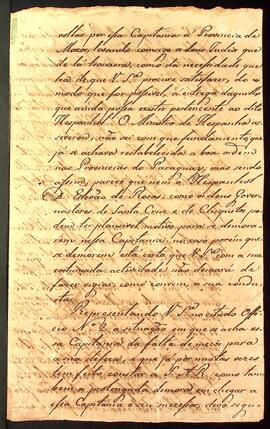 voltar por essa Capitania á Provincia de
Moxos, levando comsigo os dous Indios que
de lá trouxera, como da necessidade que
ha de que V. S.ª procure satisfazer, do
modo que for possivel, á entrega daquillo
que ainda possa existir pertencente ao dito
Hespanhol. O Ministro de Hespanha as
severou, não sei com que fundamento, que
já se achava restabelecida a boa ordem
nas Provincias do Paraguay, mas sendo
assim, parece que nem o Hespanhol
D. Estevão de Rosas, como os dous Gover
nadores de Santa Cruz e de Chiquitos, po
dem ter plausivel motivo para se demora
rem nessa Capitania, no caso porém que
se demorem está certo que V. S.ª com a sua
costumada actividade não deixará de
fazer vigiar, como convem, a sua condu
cta.
Representando V. S.ª no citado Offi
cio N.º a situação em que se acha es
sa Capitania da falta de meios para
a sua defeza, e que já por muitas vezes
tem feito constar a S. A. R. como tam
bem a prolongada demora em chegar a
essa Capitania o seu successor, devo segu